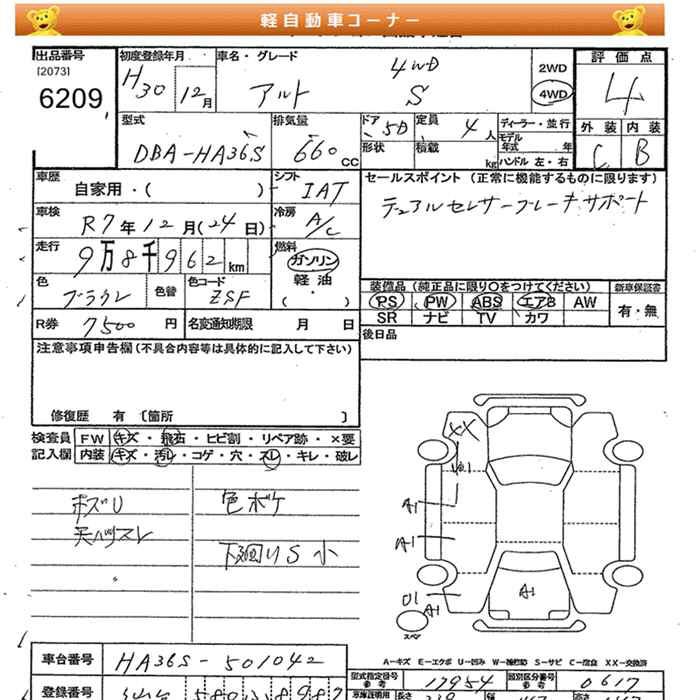 軽自動車コーナー
出品番号 初度登録年月 車名・グレード 評価点
[2073]
6209 H30 12月 アルト 4WD S 2WD 4WD 4
外装 内装
C B
型式 排気量 ドア 5D 定員 4人 ディーラー・並行
DBA-HA36S 660cc 形状 積載 kg モデル年式 年
ハンドル 左・右
車歴 自家用・( ) シフト IAT
セールスポイント (正常に機能するものに限ります)
車検 R7年12月(24日) 冷房 A/C
デュアルセンサーブレーキサポート
走行 9万8千962km 燃料 ガソリン 軽油 ( ・ )
色 ブラウン 色替 色コード ZSF
装備品 (純正品に限り○をつけてください) 新車保証書
PS PW ABS エアB AW 有・無
SR ナビ TV カワ
R券 7500円 名変通知期限 月 日
後日品
注意事項申告欄 (不具合内容等は具体的に記入して下さい)
修復歴 有 〔箇所 〕
検査員 FW キズ・飛石・ヒビ割・リペア跡・×要
記入欄 内装 キズ・汚レ・コゲ・穴・スレ・キレ・破レ
色ボケ
下廻りS小
A1
A1
A1
A1
スペア
A-キズ E-エクボ U-凹み W-補修跡 S-サビ C-腐食 XX-交換済
車台番号 HA36S-501042
型式指定番号 参考 17954 類別区分番号 参考 0617
登録番号